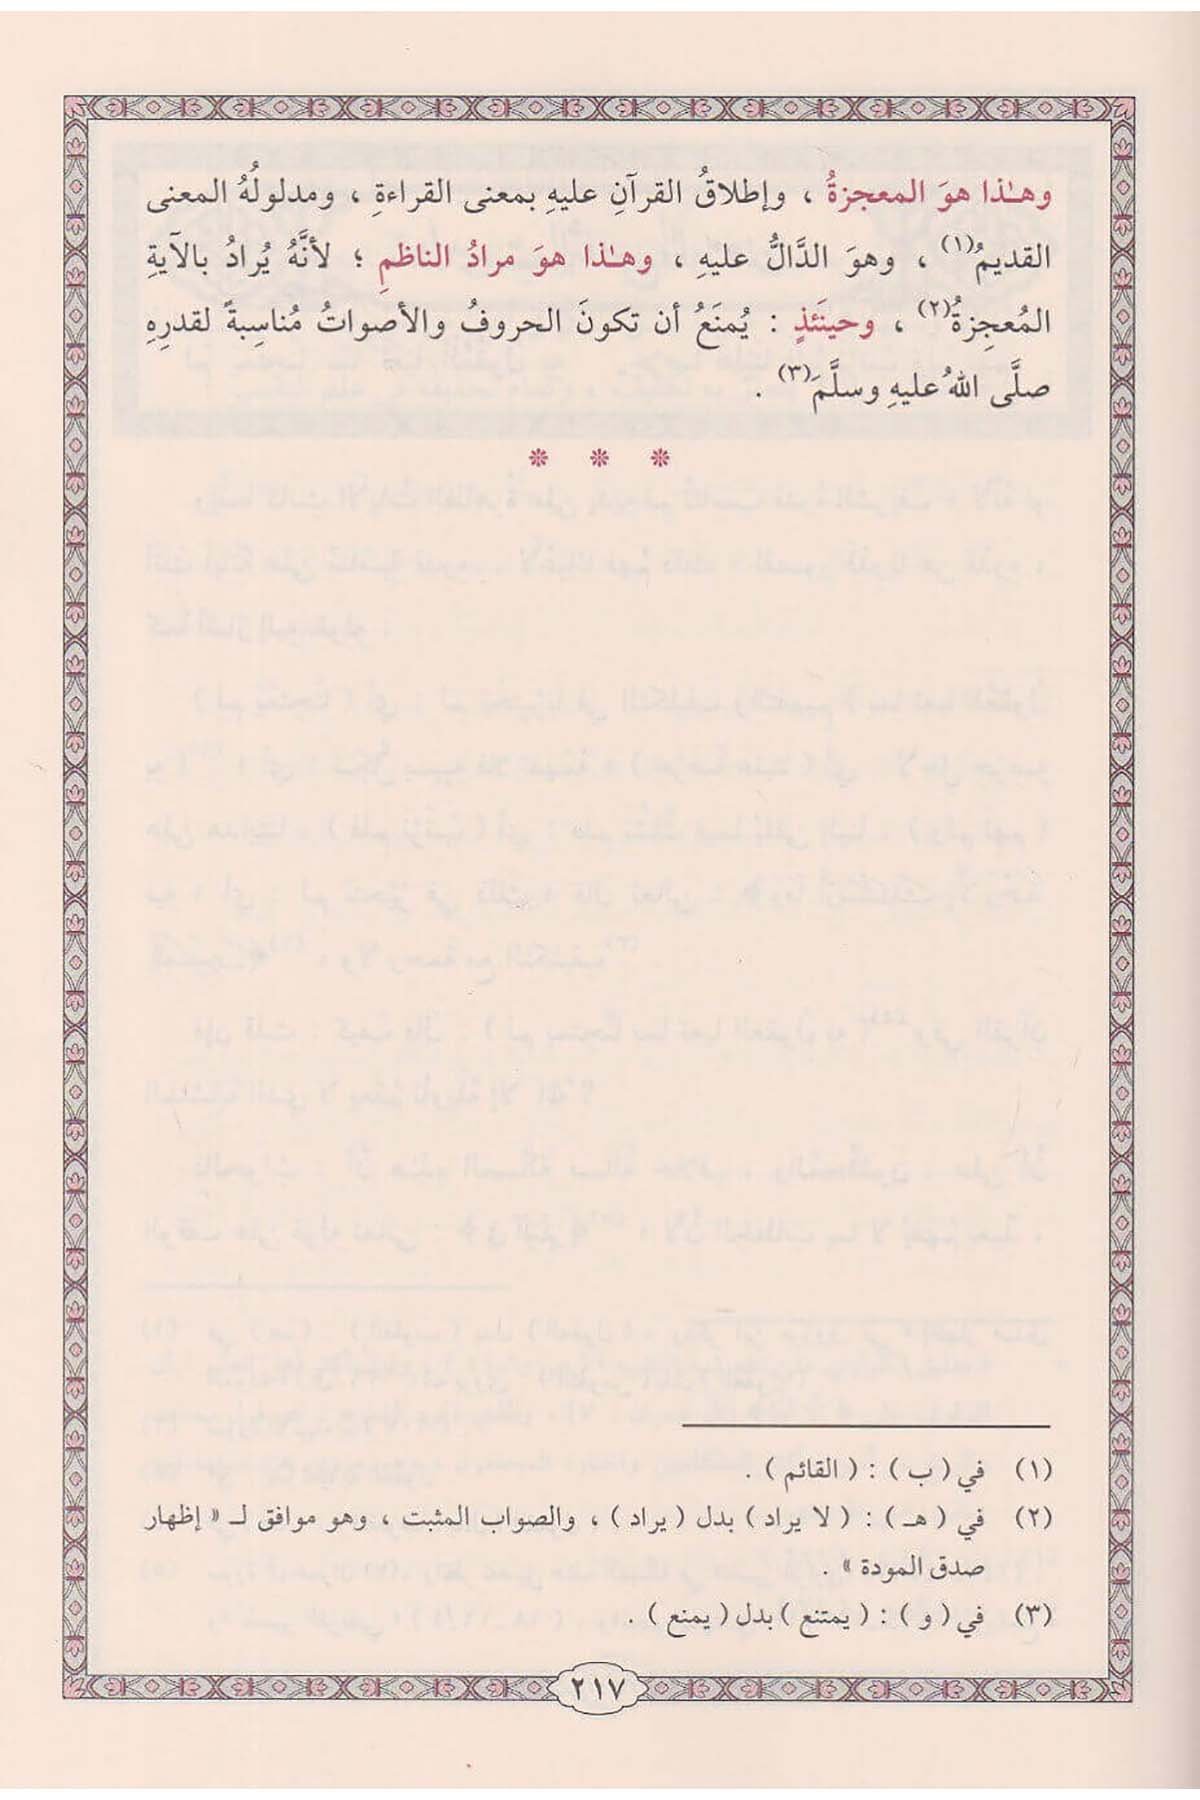 وهـٰذا هوَ المعجزةُ ، وإطلاقُ القرآنِ عليهِ بمعنى القراءةِ ، ومدلولُهُ المعنى
القديمُ(١) ، وهوَ الدَّالُّ عليهِ ، وهـٰذا هوَ مرادُ الناظمِ ؛ لأنَّهُ يُرادُ بالآيةِ
المُعجزةُ(٢) ، وحينَئذٍ : يُمنَعُ أن تكونَ الحروفُ والأصواتُ مُناسِبةً لقدرِهِ
صلَّى اللهُ عليهِ وسلَّمَ(٣) .
* * *
(١) في ( ب ) : ( القائم ) .
(٢) في ( هـ ) : ( لا يراد ) بدل ( يراد ) ، والصواب المثبت ، وهو موافق لـ « إظهار
صدق المودة » .
(٣) في ( و ) : ( يمتنع ) بدل ( يمنع ) .
٢١٧